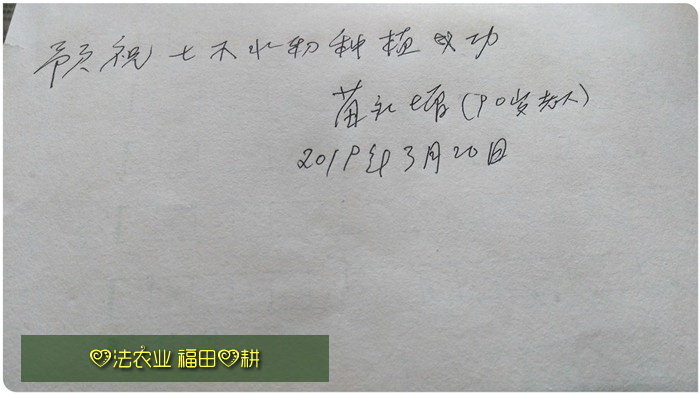 预祝七不水物种植成功
苗永增(90岁老人)
2019年3月20日
♡法农业 福田♡耕